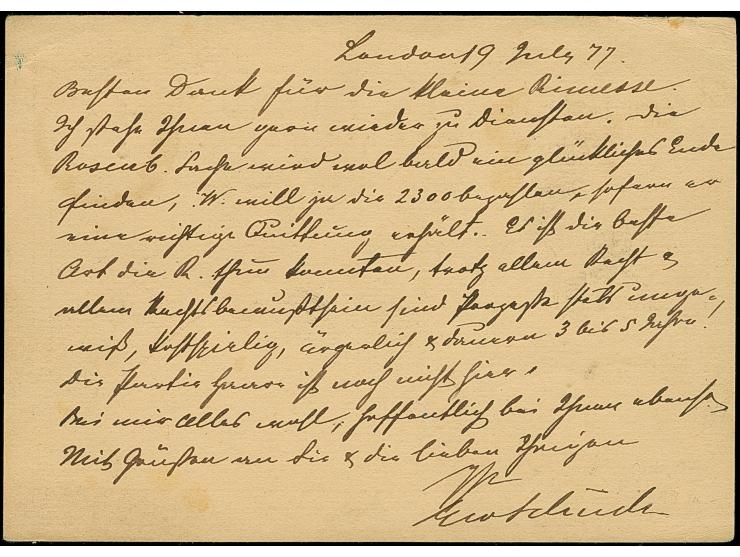 London 9 July 77.
Besten Dank für die kleine Rimesse.
Ich stehe Ihnen gern wieder zu Diensten. Die
Rosenb. Sache wird wol bald ein glückliches Ende
finden, W. will ja die 2300 bezahlen, sofern er
eine richtige Quittung erhält. Es ist die beste
Art die R. thun konnten, trotz allem Recht &
allem Rechtsbewußtsein sind Prozesse stets unge-
wiß, kostspielig, ärgerlich & dauern 3 bis 5 Jahre!
Die Partie Haare ist noch nicht hier.
Bei mir alles wohl, hoffentlich bei Ihnen ebenso.
Mit Grüßen an Sie & die lieben Ihrigen
Ihr